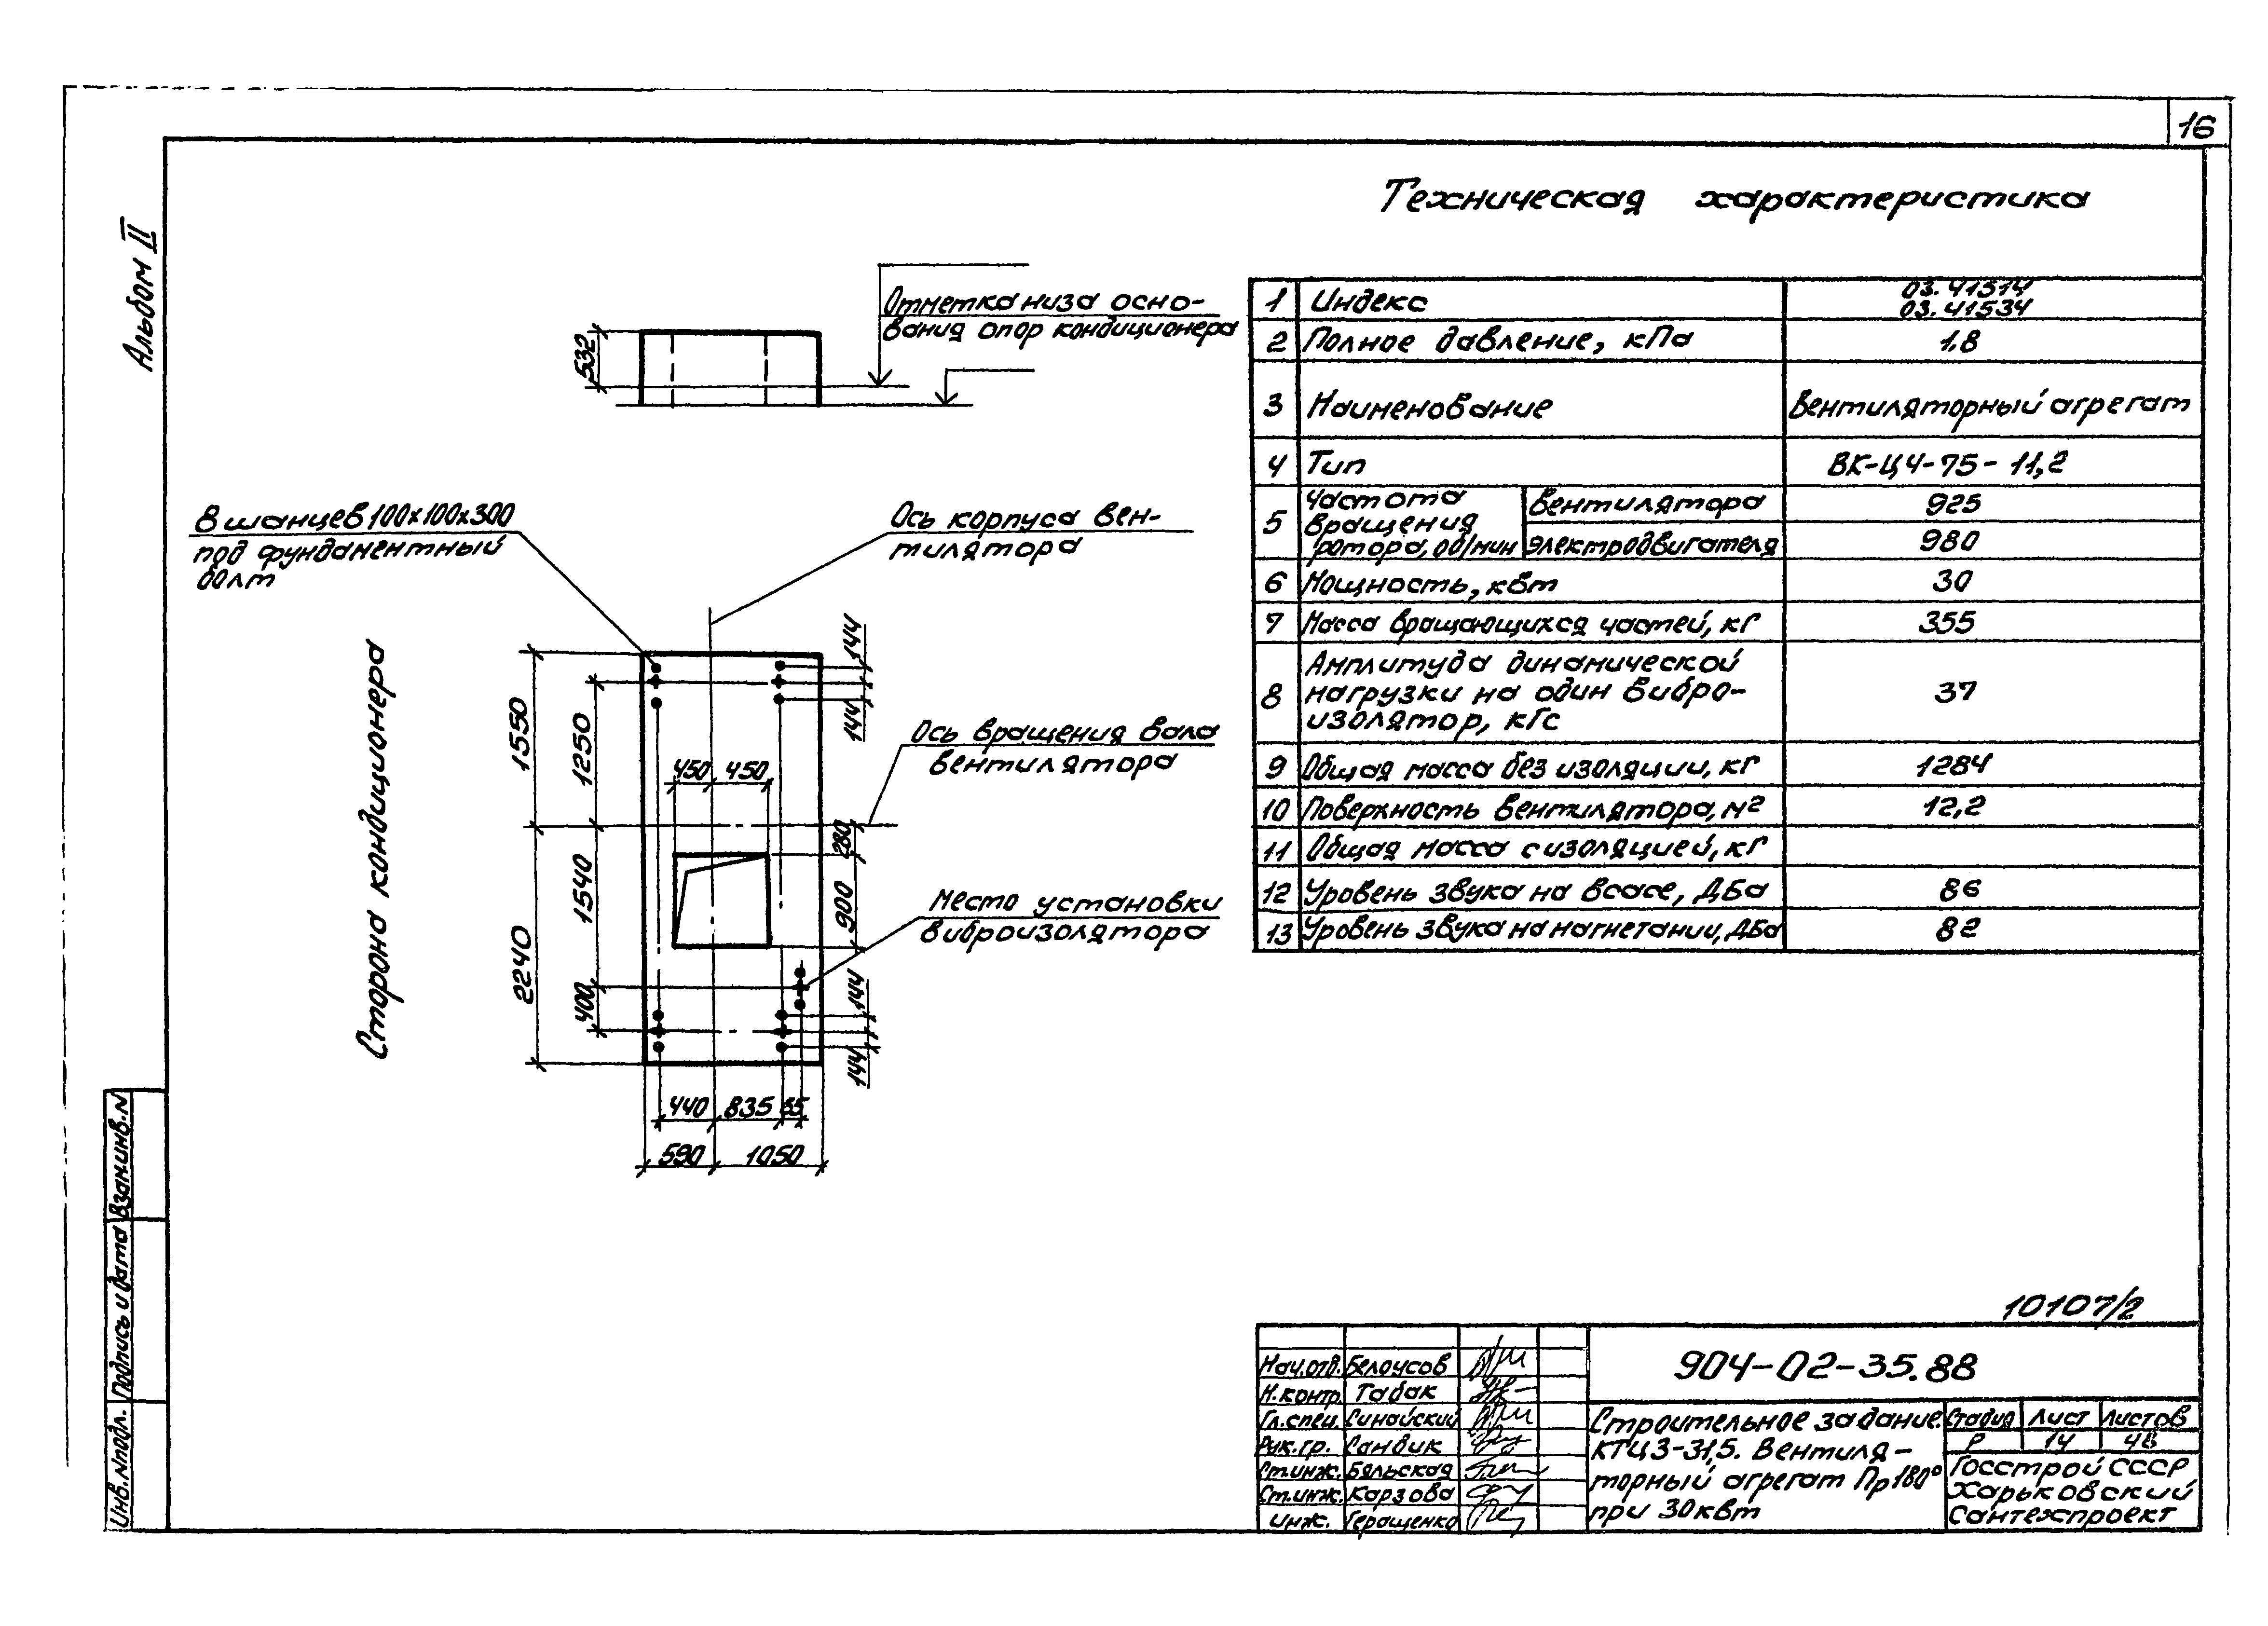 16
Альбом II
Техническая характеристика
Отметка низа осно-
вания опор кондиционера
532
1 Индекс 03.41314
03.41534
2 Полное давление, кПа 1.8
3 Наименование Вентиляторный агрегат
4 Тип ВК-Ц4-75-11,2
5 Частота вращения ротора, об/мин
вентилятора 925
электродвигателя 980
6 Мощность, квт 30
7 Масса вращающихся частей, кг 355
8 Амплитуда динамической
нагрузки на один вибро-
изолятор, кГс 37
9 Общая масса без изоляции, кг 1284
10 Поверхность вентилятора, м2 12,2
11 Общая масса с изоляцией, кг
12 Уровень звука на всасе, ДБа 86
13 Уровень звука на нагнетании, ДБа 82
8 шанцев 100х100х300
под фундаментный
болт
Ось корпуса вен-
тилятора
Ось вращения вала
вентилятора
Место установки
виброизолятора
Сторона кондиционера
1550
1250
1540
2240
400
144
144
450 450
280
900
144
144
440 835 65
590 1050
Инв.Nподл. Подпись и дата Взам.инв.N
10107/2
904-02-35.88
Нач.отв. Белоусов
Н.контр. Табак
Гл.спец. Синайский
Рук.гр. Сандик
Ст.инж. Бяльская
Ст.инж. Карзова
инж. Геращенко
Строительное задание.
КТЦ3-31,5. Вентиля-
торный агрегат Пр180°
при 30квт
Стадия Лист Листов
Р 14 48
Госстрой СССР
Харьковский
Сантехпроект